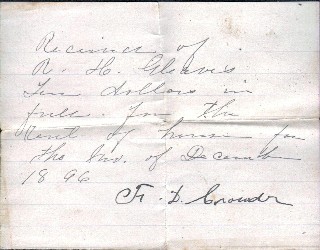 Recieved of
R. H. Gleaves
Ten dollars in
full. for the
Rent of house for
the Mo. of December
1896
F. D. Crowder